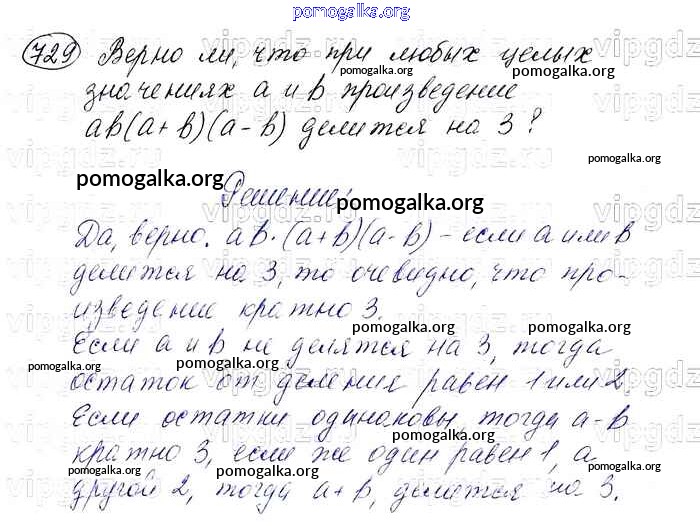 pomogalka.org
729 Верно ли, что при любых целых
pomogalka.org
значениях a и b произведение
ab(a+b)(a-b) делится на 3?
pomogalka.org
pomogalka.org
Решение:
pomogalka.org
Да, верно. ab·(a+b)(a-b) - если a или b
делится на 3, то очевидно, что про-
изведение кратно 3.
pomogalka.org
pomogalka.org
Если a и b не делятся на 3, тогда
pomogalka.org
остаток от деления равен 1 или 2
pomogalka.org
Если остатки одинаковы, тогда a-b
pomogalka.org
кратно 3, если же один равен 1, а
pomogalka.org
pomogalka.org
pomogalka.org
другой 2, тогда a+b, делится на 3.